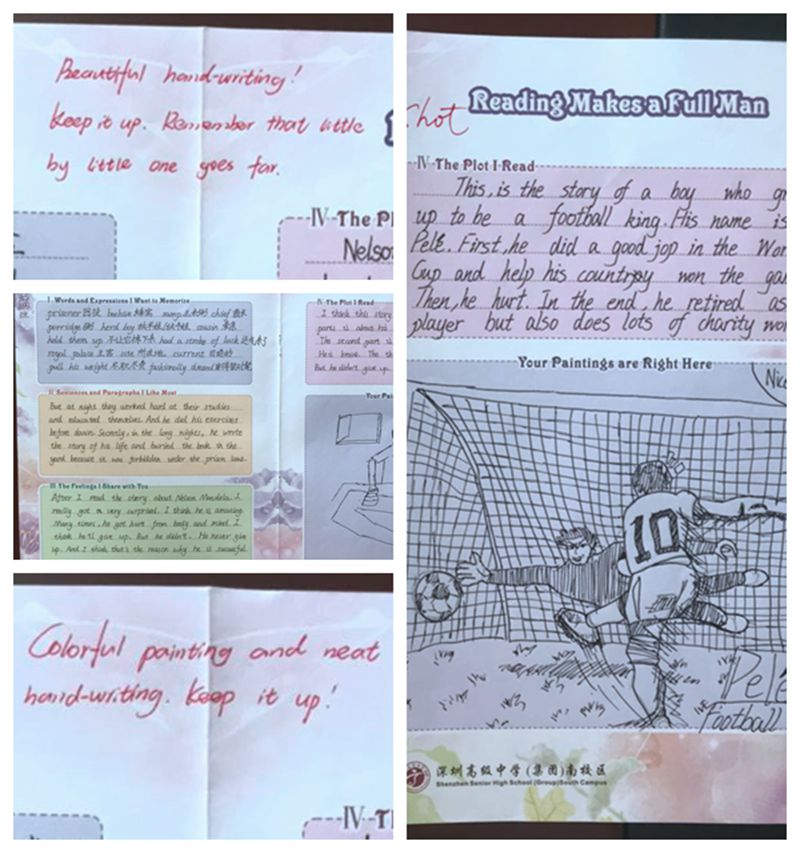 Beautiful hand-writing!
Keep it up. Remember that little
by little one goes far.
IV The Pl
Nelso
I Words and Expressions I Want to Memorize
prisoner 囚徒
chief
porridge herd boy cousin
hold them up had a stroke of luck
royal palace 王宫 site current
pull his weight
II Sentences and Paragraphs I Like Most
But at night they worked hard at their studies
and educated themselves. And he did his exercises
before dawn. Secretly, in the long nights, he wrote
the story of his life and buried the book in the
yard because it was forbidden under the prison laws.
III The Feelings I Share with You
After I read the story about Nelson Mandela. I
really got a very surprised. I think he is amazing.
Many times, he got hurt from body and mind. I
think he'll give up. But he didn't. He never give
up. And I think that's the reason why he is successful
IV The Plot I Read
I think this story
parts is about his
The second part is
But he didn't give up.
Your Pai
Colorful painting and neat
hand-writing. Keep it up!
IV T
hot
Reading Makes a Full Man
IV The Plot I Read
This, is the story of a boy who gr
up to be a football king. His name is
Pelé. First, he did a good jop in the Wor
Cup and help his country won the ga
Then, he hurt. In the end, he retired as
player but also does lots of charity wo
Your Paintings are Right Here
Nice
10
Pelé
football
深圳高级中学(集团)南校区
Shenzhen Senior High School (Group) South Campus